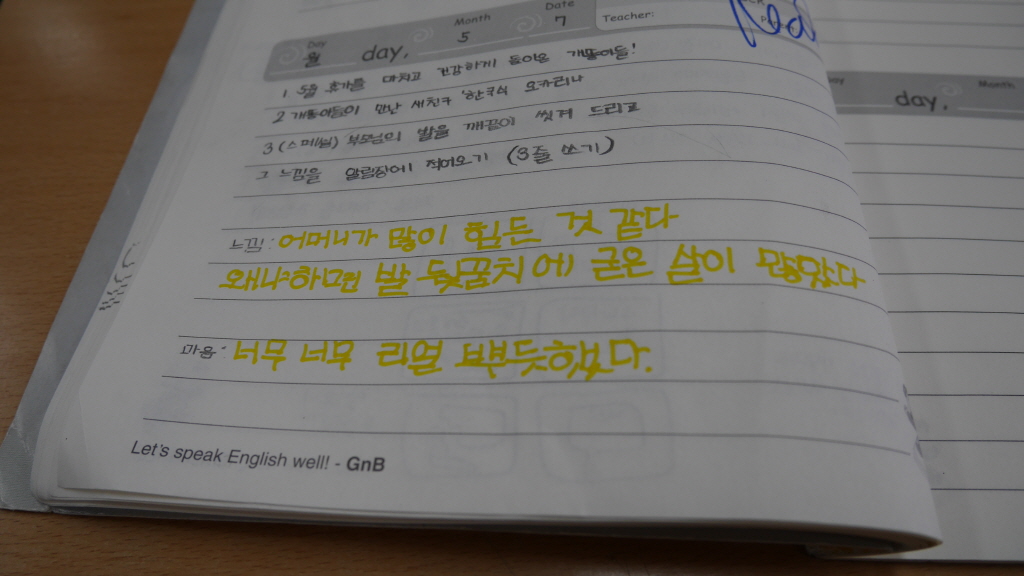 Day 월 day, Month 5 Date 7 Teacher:
1 5월 휴가를 마치고 건강하게 돌아온 개똥이들!
2 개똥이들이 만난 새친구 '한쿠쉬 오카리나
3 (스페셜) 부모님의 발을 깨끝이 씻겨 드리고
그 느낌을 알림장에 적어오기 (3줄 쓰기)
느낌: 어머니가 많이 힘든 것 같다
왜냐하면 발 뒷꿈치에 굳은 살이 많았다
마음: 너무 너무 리얼 뿌듯했다.
Let's speak English well! - GnB
day, Month